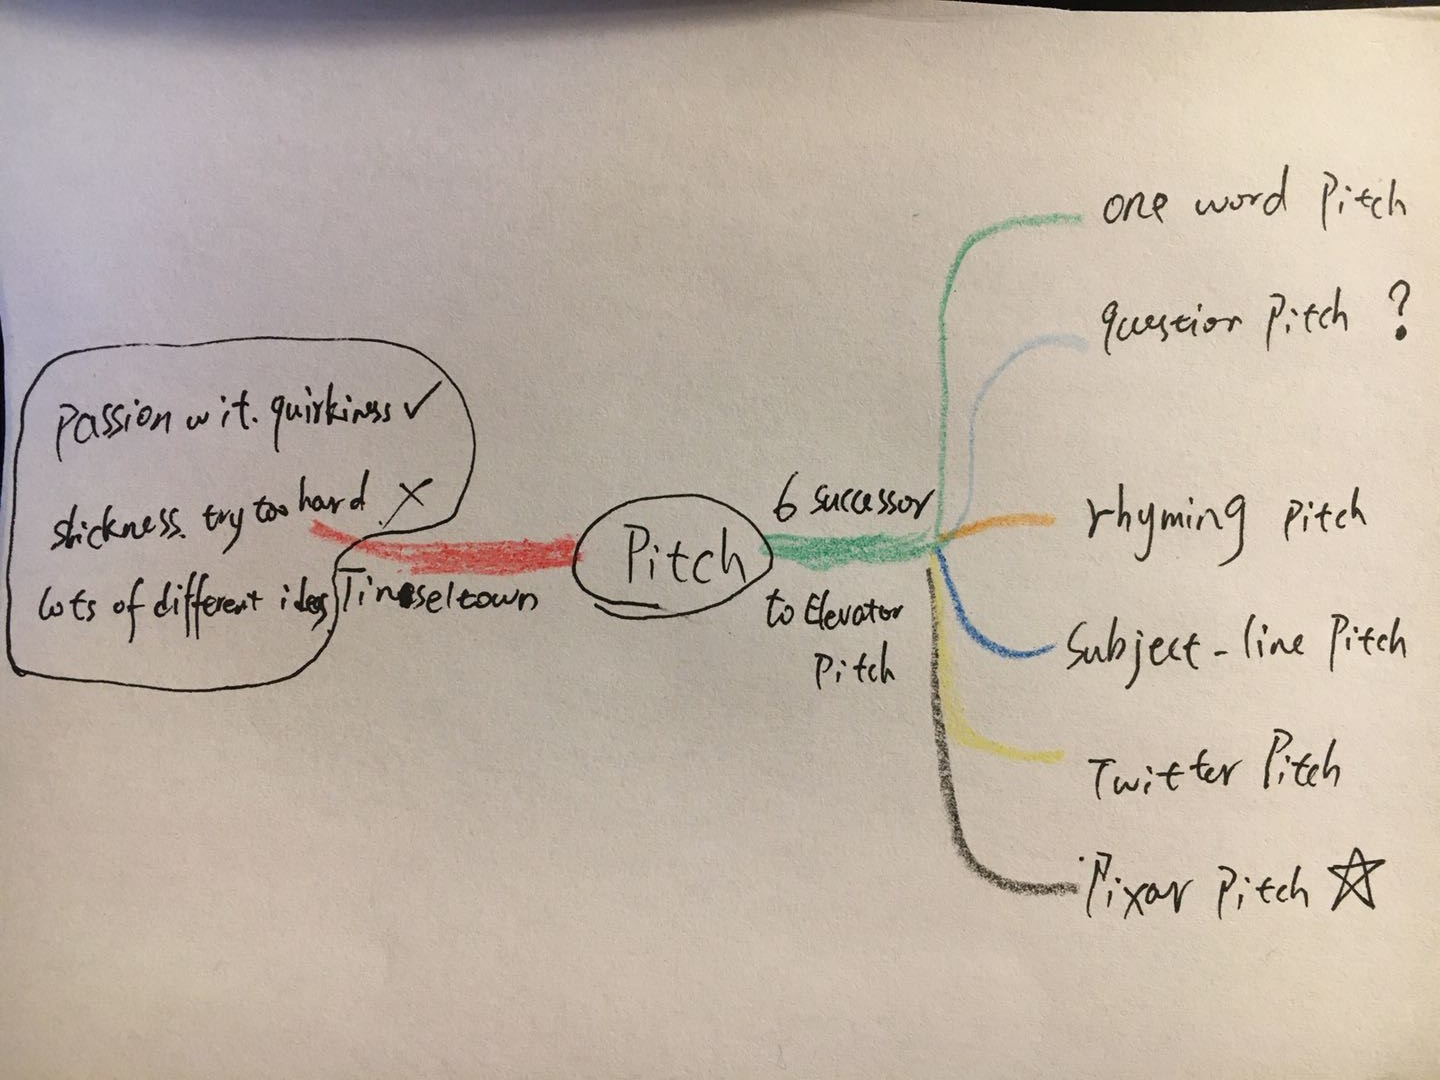 Passion wit. quirkiness ✓
slickness. try too hard. ×
lots of different ideas
Tinseltown
Pitch
6 successor
to Elevator
Pitch
one word Pitch
question Pitch ?
rhyming pitch
Subject-line Pitch
Twitter Pitch
Pixar Pitch ☆